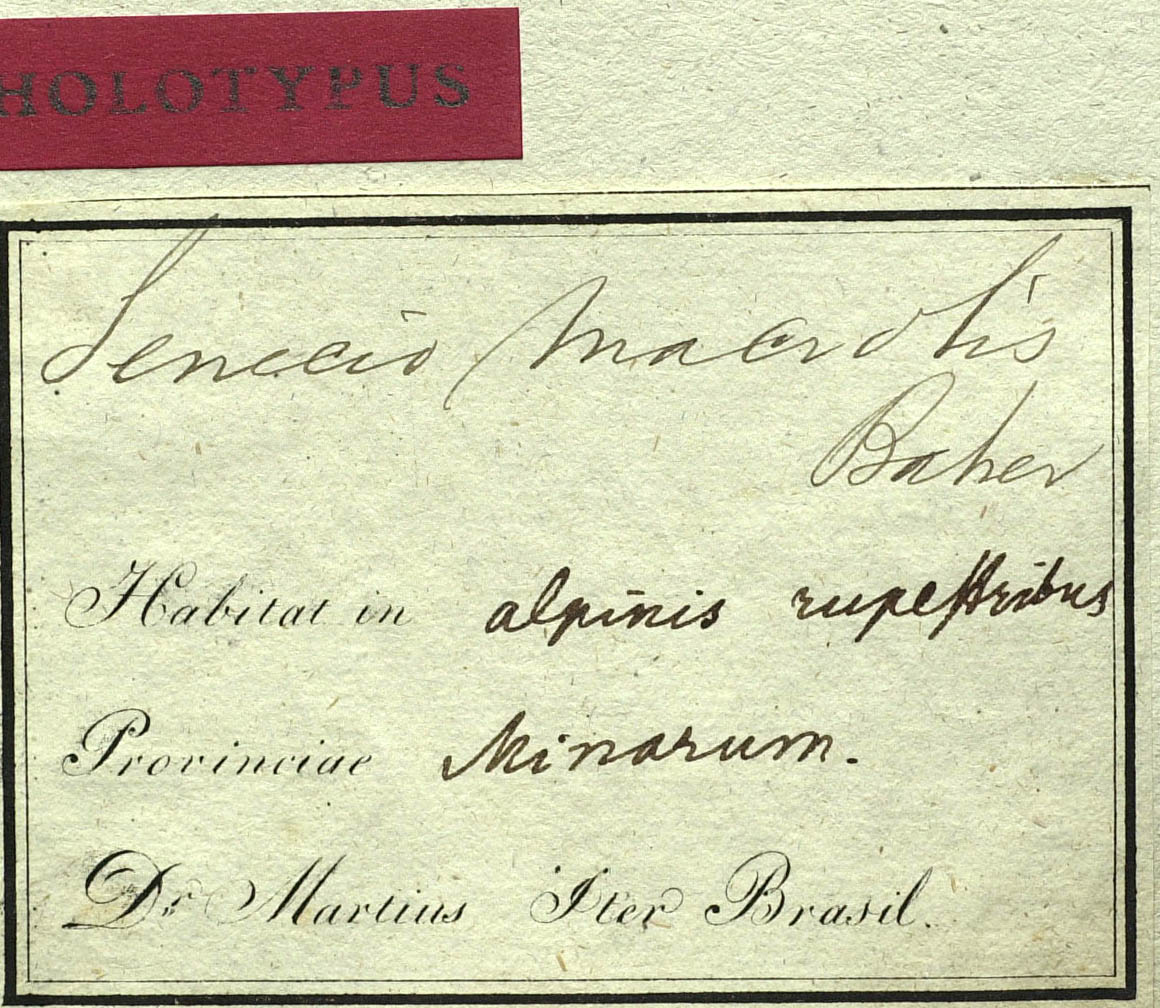 HOLOTYPUS
Senecio macrotis
Baker
Habitat in alpinis rupestribus
Provinciae Minarum.
Dr Martius Iter Brasil.